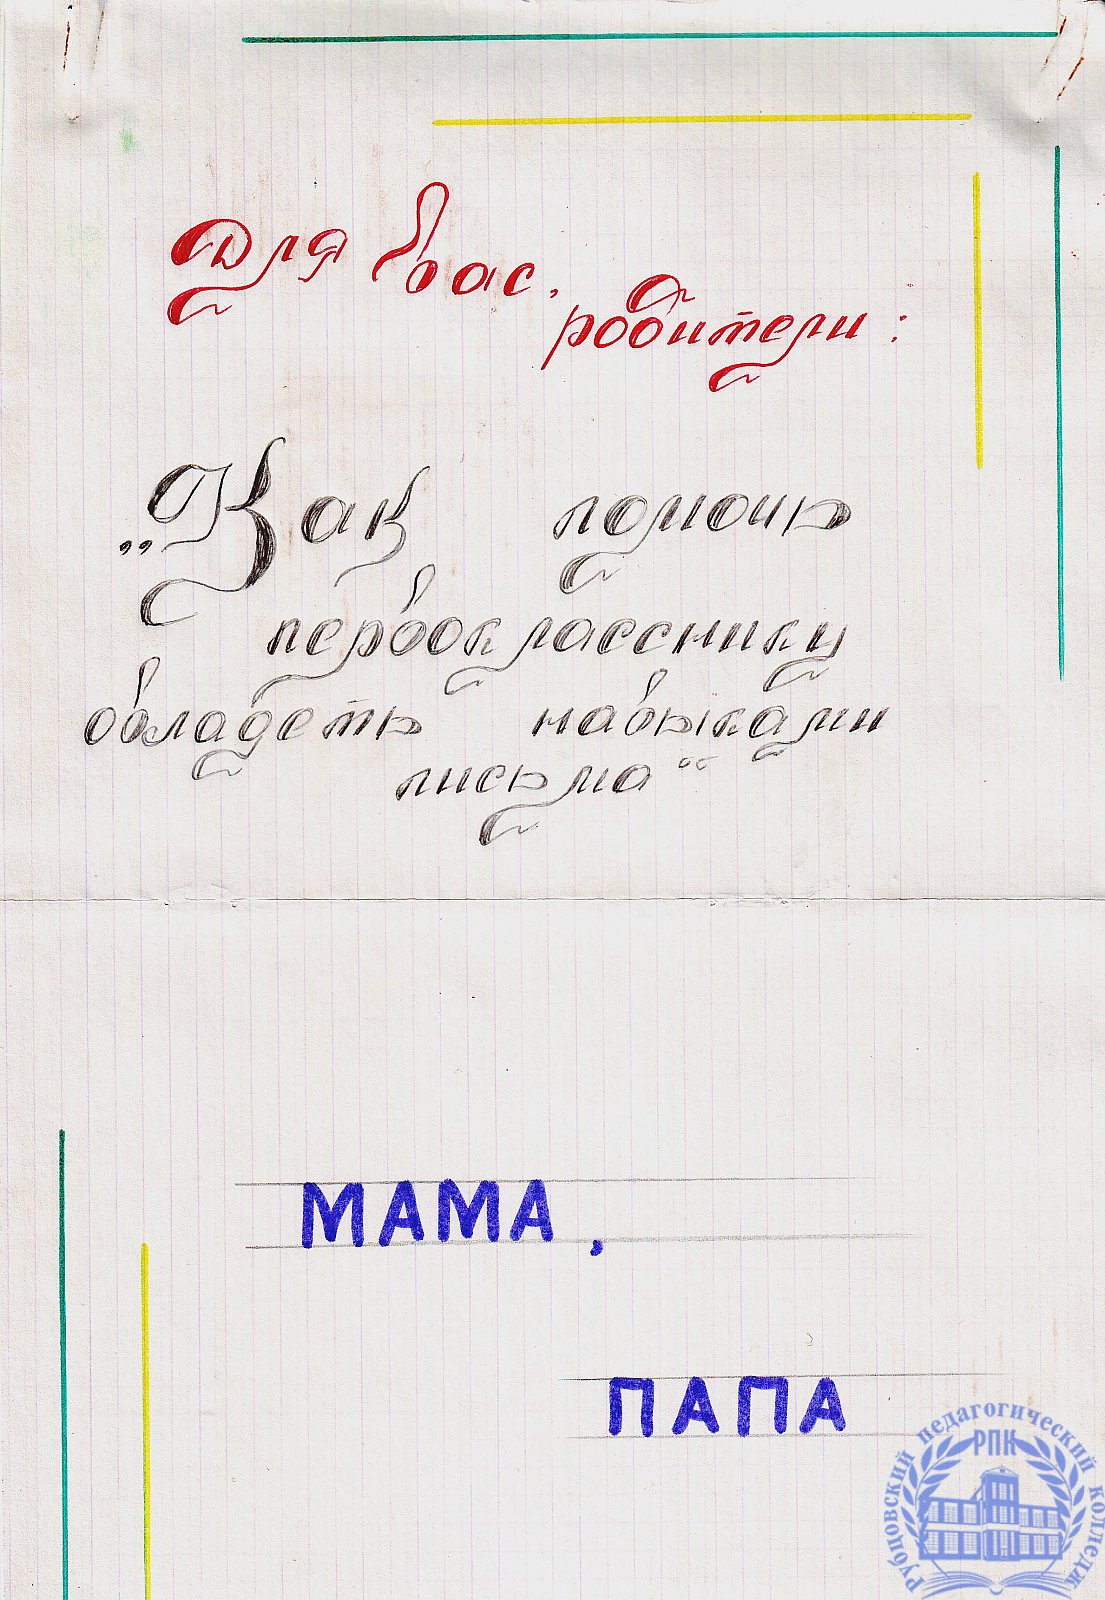 Для вас,
родители:
„Как помочь
первокласснику
овладеть навыками
письма“
МАМА,
ПАПА
Рубцовский педагогический колледж
РПК